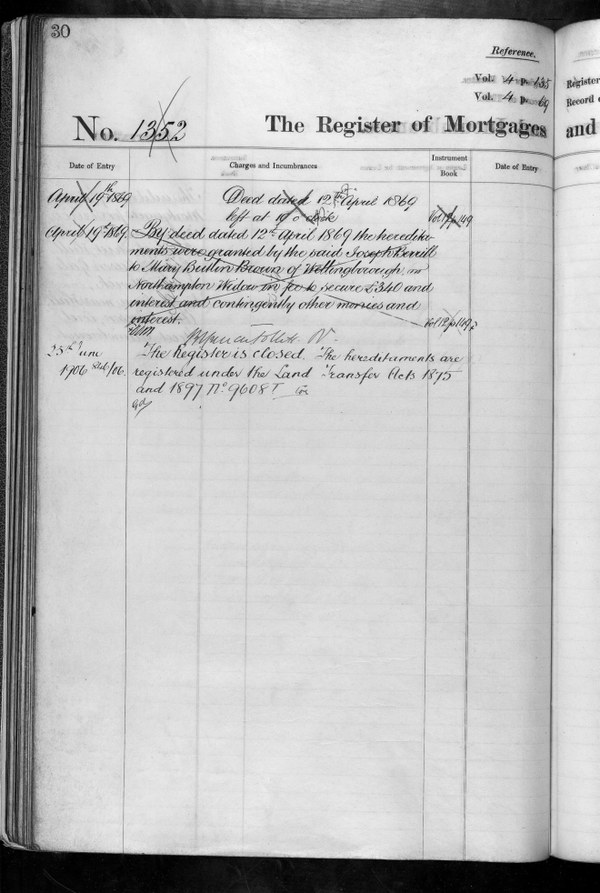 30
Reference.
Vol. 4 p. 135
Vol. 4 p. 69
Register
Record
No. 1352 The Register of Mortgages and
Date of Entry Charges and Incumbrances Instrument Book Date of Entry
April 19th 1869 Deed dated 12th April 1869
left at 10 o'clock Vol 12 p 149
April 19th 1869 By deed dated 12th April 1869 the heredita-
ments were granted by the said Joseph Berrill
to Mary Butlin Brown of Wellingborough, in
Northampton Widow in fee to secure £340 and
interest and contingently other monies and
interest. Vol 12 p 149
25th June The Register is closed. The hereditaments are
1906 registered under the Land Transfer Acts 1875
and 1897 No. 9608